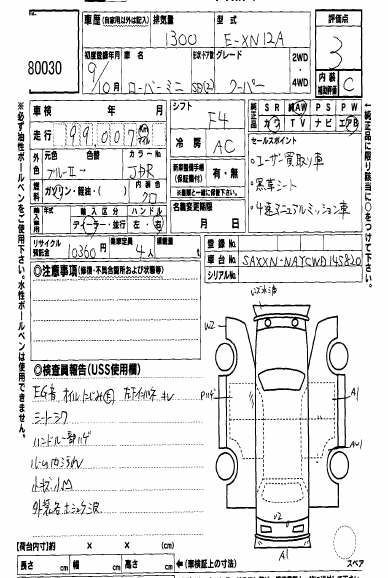 80030
車歴 (自家用以外は記入)
排気量
型式
評価点
1300
E-XN12A
3
初度登録年月
車名
形状・ドア数
グレード
9/10月
ローバーミニ
SD(2)
クーパー
2WD・4WD
内装補助評価
C
車検 年 月
シフト
F4
純正品
SR 純AW PS PW
カワ TV ナビ エアB
走行 99,007 Km マイル
冷房
AC
セールスポイント
・ユーザー買取り車
・黒革シート
・4速マニュアルミッション車
外色
元色 色替
カラーNo.
ブルーII→
JAR
燃料
ガソリン・軽油・( )
内装色
クロ
新車整備手帳(保証書付)
有・無
※書類と一緒に保管下さい
輸入車使用
年式
輸入区分
ハンドル
ディーラー・並行
左・右
名義変更期限
月 日
リサイクル預託金
10360円
乗車定員
4人
積載量
t
登録No.
車台No.
SAXXN-NAYCWD145820
シリアルNo.
◎注意事項 (修復・不具合箇所および状態等)
◎検査員報告(USS使用欄)
シートシワ
ハンドル一部ハゲ
小キズ小凹
W2
A1
A1
【荷台内寸】約 X X (cm)
長さ cm 幅 cm 高さ cm
←(車検証上の寸法)
スペア
※必ず油性ボールペンをご使用下さい。水性ボールペンは使用できません。
★純正品に限り該当に○をつけて下さい。